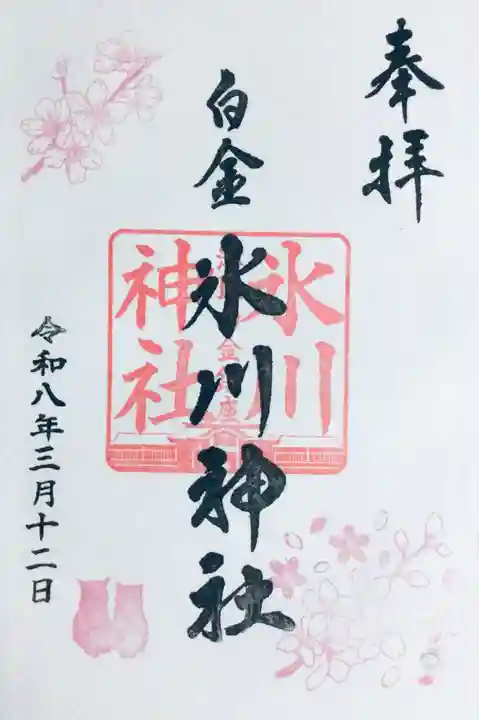 奉拝
白金
氷川神社
氷川
神社
令和八年三月十二日